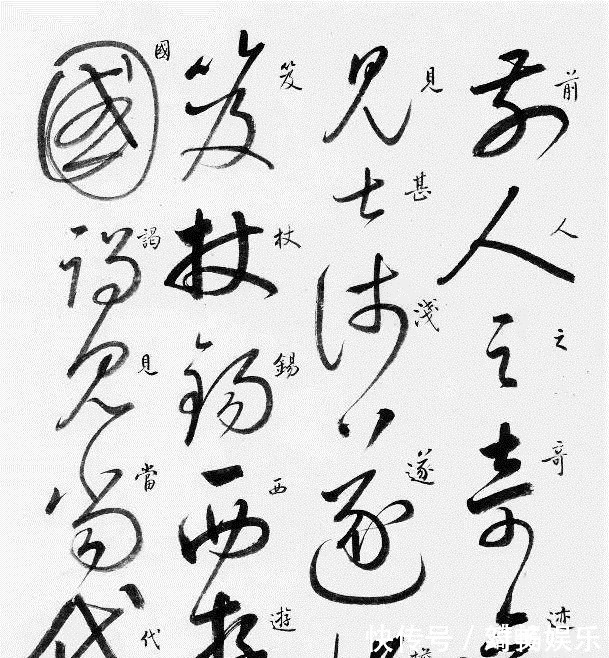 前人之奇迹
見甚淺遂擔
笈杖錫西遊
國謁見當代
快传号 /
娱乐